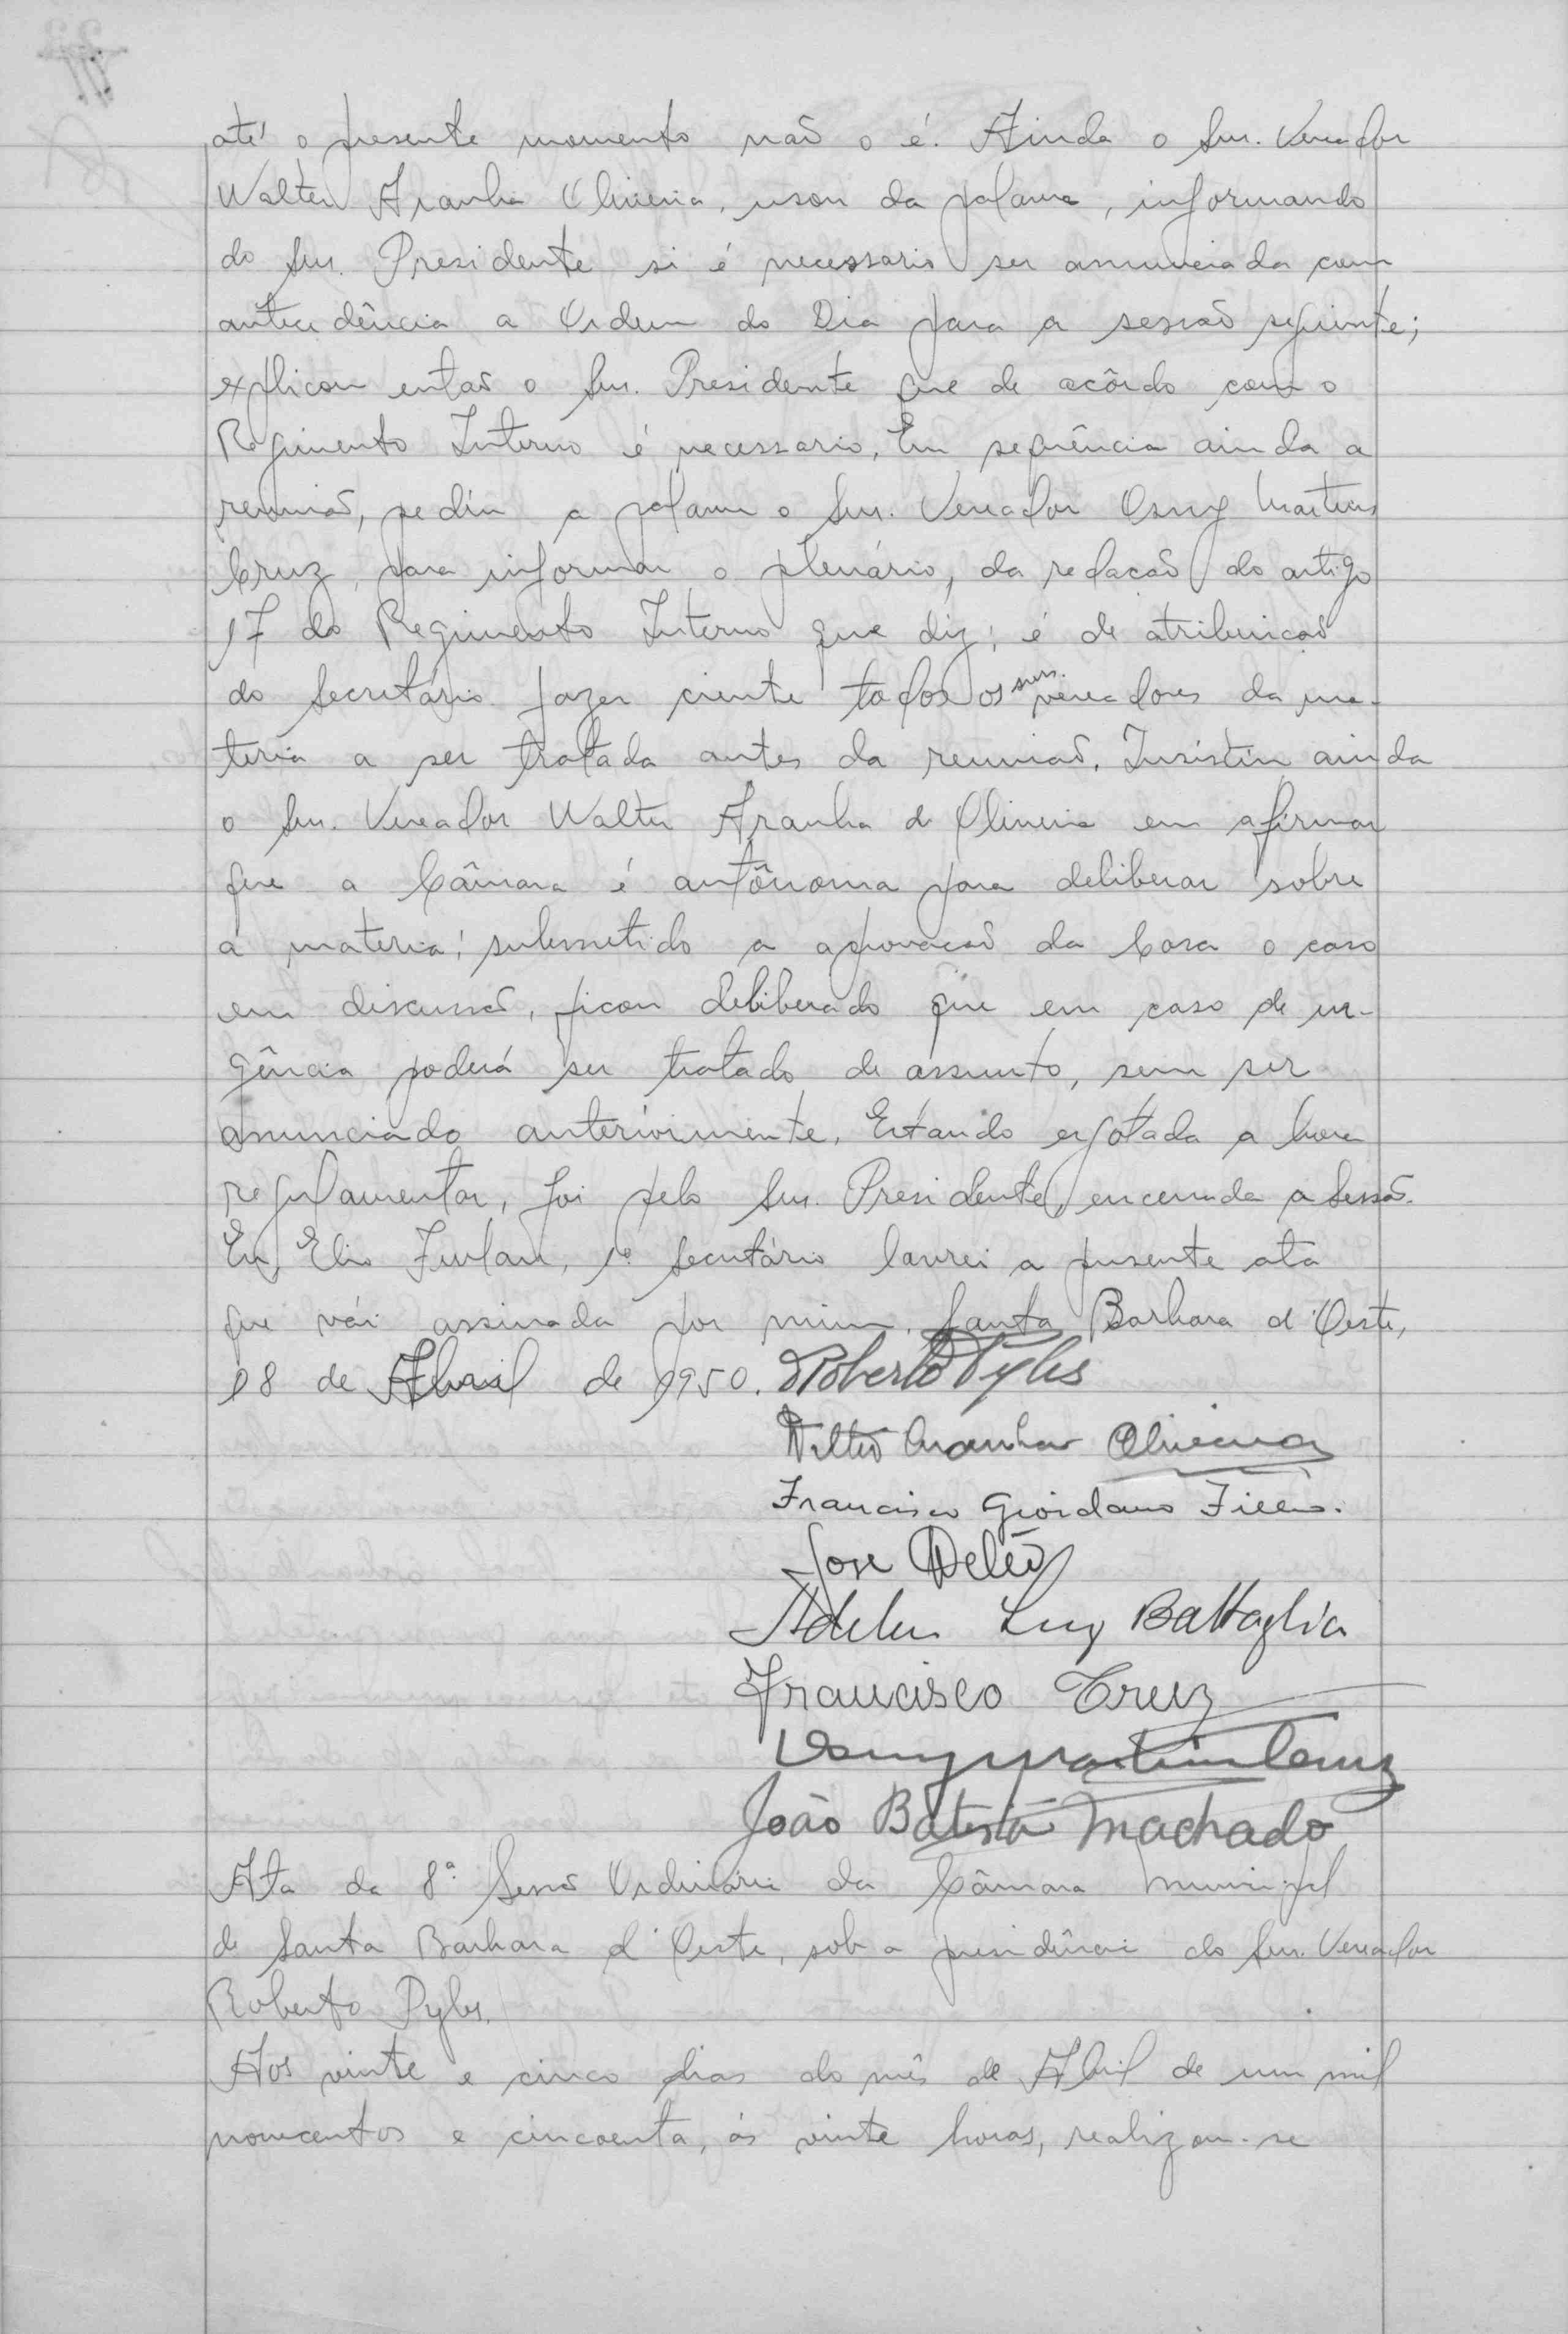 até o presente momento não o é. Ainda o Snr. Vereador
Walter Aranha Oliveira, usou da palavra, informando
do Snr. Presidente si é necessario ser anunciada com
antecedência a Ordem do Dia para a sessão seguinte;
explicou então o Snr. Presidente que de acôrdo com o
Regimento Interno é necessario. Em sequência ainda a
reunião, pediu a palavra o Snr. Vereador Osny Martins
Cruz, para informar o plenário, da redacão do artigo
17 do Regimento Interno que diz; é de atribuicão
do Secretário fazer ciente todos os snrs. vereadores da ma-
teria a ser tratada antes da reunião. Insistiu ainda
o Snr. Vereador Walter Aranha de Oliveira em afirmar
que a Câmara é autônoma para deliberar sobre
a materia; submetido a aprovacão da Casa o caso
em discussão, ficou deliberado que em caso de ur-
gência poderá ser tratado de assunto, sem ser
anunciado anteriormente. Estando esgotada a hora
regulamentar, foi pelo Snr. Presidente, encerrada a Sessão.
Eu, Elio Furlan, 1º Secretário lavrei a presente ata
que vái assinada por mim. Santa Barbara d'Oeste,
18 de Abril de 1950. Roberto Pyles
Walter Aranha Oliveira
Francisco Giordano Filho.
Jose
Luiz Battaglia
Francisco Cruz
Osny Martins Cruz
João Batista Machado
Ata da 8ª Sessão Ordinária da Câmara Municipal
de Santa Bárbara d'Oeste, sob a presidência do Snr. Vereador
Roberto Pyles.
Aos vinte e cinco dias do mês de Abril de um mil
novecentos e cincoenta, ás vinte horas, realizou-se